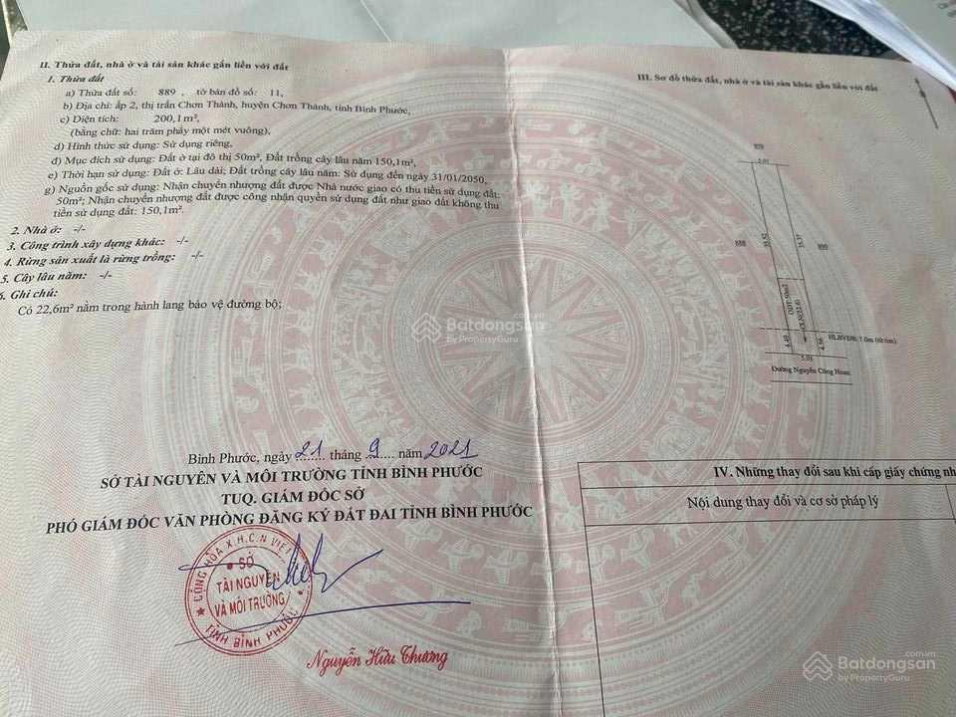 II. Thửa đất, nhà ở và tài sản khác gắn liền với đất
1. Thửa đất
a) Thửa đất số: 889 , tờ bản đồ số: 11,
b) Địa chỉ: ấp 2, thị trấn Chơn Thành, huyện Chơn Thành, tỉnh Bình Phước,
c) Diện tích: 200,1m²,
(bằng chữ: hai trăm phẩy một mét vuông),
d) Hình thức sử dụng: Sử dụng riêng,
đ) Mục đích sử dụng: Đất ở tại đô thị 50m², Đất trồng cây lâu năm 150,1m²,
e) Thời hạn sử dụng: Đất ở: Lâu dài; Đất trồng cây lâu năm: Sử dụng đến ngày 31/01/2050,
g) Nguồn gốc sử dụng: Nhận chuyển nhượng đất được Nhà nước giao có thu tiền sử dụng đất:
50m²; Nhận chuyển nhượng đất được công nhận quyền sử dụng đất như giao đất không thu
tiền sử dụng đất: 150,1m².
2. Nhà ở: -/-
3. Công trình xây dựng khác: -/-
4. Rừng sản xuất là rừng trồng: -/-
5. Cây lâu năm: -/-
6. Ghi chú:
Có 22,6m² nằm trong hành lang bảo vệ đường bộ;
Bình Phước, ngày 21 tháng 9 năm 2021
SỞ TÀI NGUYÊN VÀ MÔI TRƯỜNG TỈNH BÌNH PHƯỚC
TUQ. GIÁM ĐỐC SỞ
PHÓ GIÁM ĐỐC VĂN PHÒNG ĐĂNG KÝ ĐẤT ĐAI TỈNH BÌNH PHƯỚC
CỘNG HÒA X.H.C.N VIỆT
SỞ
TÀI NGUYÊN
VÀ MÔI TRƯỜNG
TỈNH BÌNH PHƯỚC
Nguyễn Hữu Thương
III. Sơ đồ thửa đất, nhà ở và tài sản khác gắn liền với đất
Đường Nguyễn Công Hoan
IV. Những thay đổi sau khi cấp giấy chứng nh
Nội dung thay đổi và cơ sở pháp lý
Batdongsan
by PropertyGuru
Batdongsan
.com.vn
by PropertyGuru